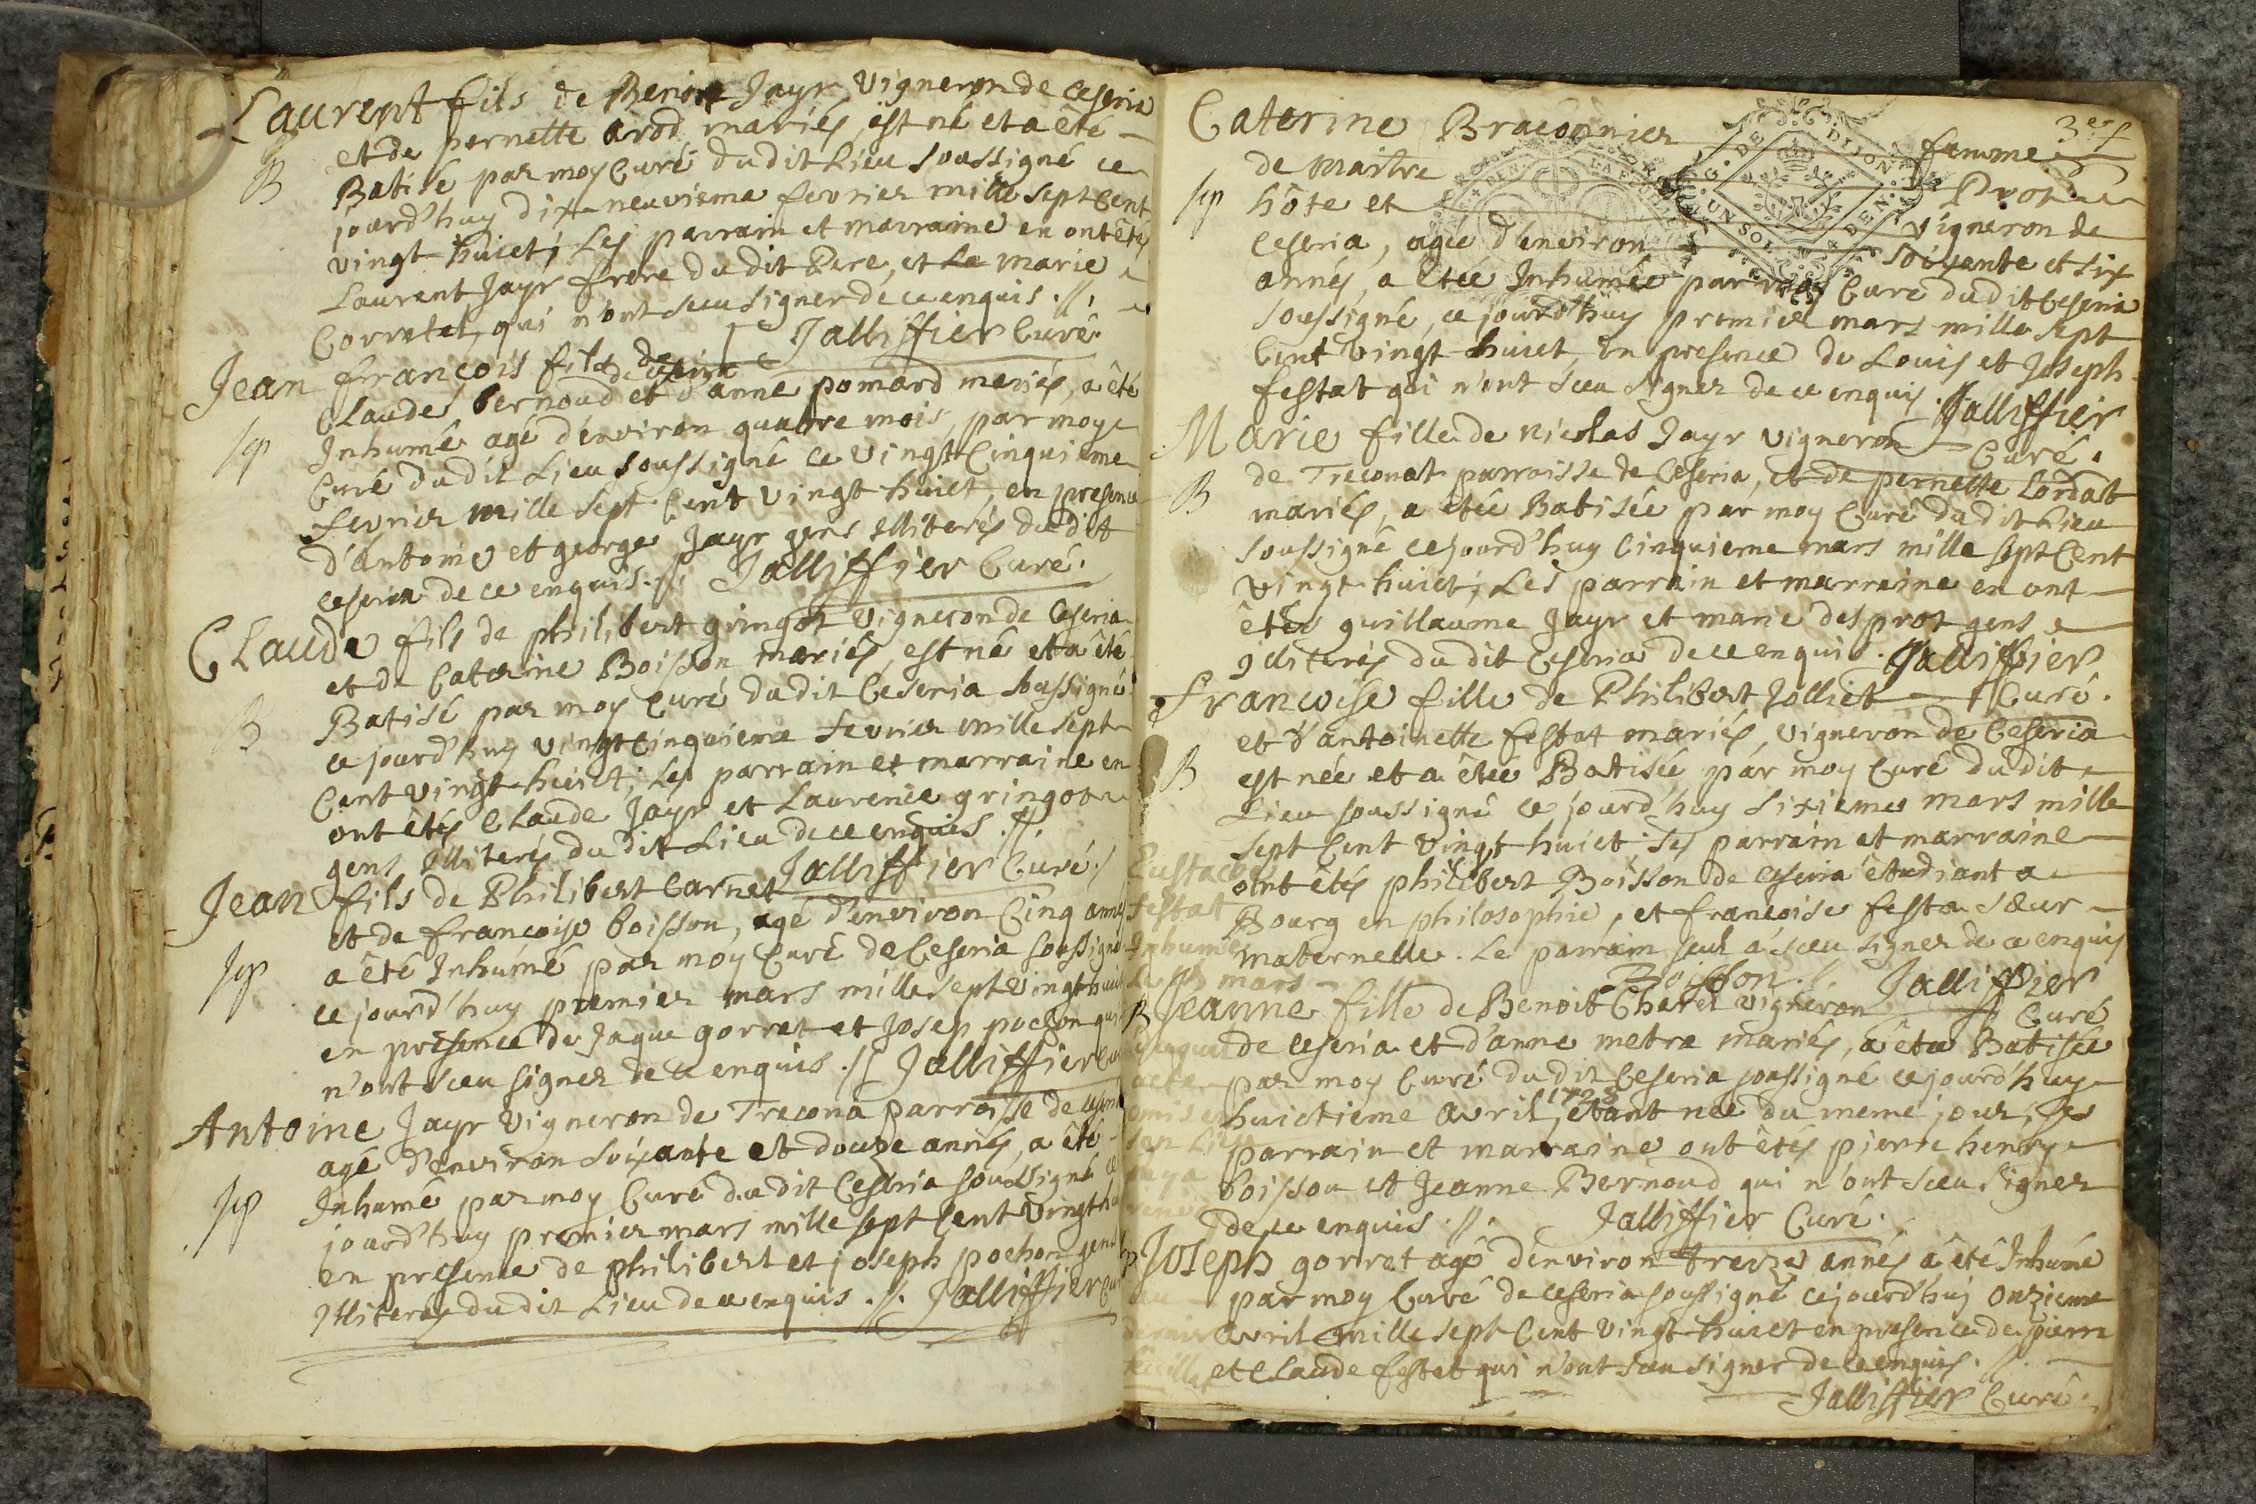 Laurent fils de Benoit Jayr vigneron de Ceseria
et de pernette arod mariés, est né et a été
B
Batisé par moy Curé dudit Lieu soussigné ce
jourd'huy dix neuvieme fevrier mille sept Cent
vingt huict; Les parrain et marraine en ont étés
Laurent Jayr frere dudit Pere, et La marie
Corretel, qui n'ont sceu signer de ce enquis ./.
Jalliffier Curé
Jean françois fils de
de Ceseria
Claude bernoud et d'anne pomard mariés, a été
Sep
Inhumé agé d'environ quatre mois, par moy
Curé dudit Lieu soussigné ce vingt Cinquieme
fevrier mille sept Cent vingt huict, en presence
d'antoine et george Jayr gens Illiterés dudit
Ceseria de ce enquis ./. Jalliffier Curé.
Claude fils de philibert gringoz vigneron de Ceseria
et de Caterine Boisson mariés, est né et a été
B
Batisé par moy Curé dudit Ceseria soussigné
ce jourd'huy vingt Cinquieme fevrier mille sept
Cent vingt huict; Les parrain et marraine en
ont étés Claude Jayr et Laurence gringoz
gens Illiterés dudit Lieu de ce enquis ./.
Jalliffier Curé
Jean fils de Philibert Carnet
et de françoise boisson, agé d'environ Cinq années
Sep
a été Inhumé par moy Curé de Ceseria soussigné
ce jourd'huy premier mars mille sept vingt huict
en presence de Jaque gorret et Josep pochon qui
n'ont sceu signer de ce enquis ./. Jalliffier Curé
Antoine Jayr vigneron de Trecona parroisse de Ceseria
agé d'environ soixante et douze années, a été
Sep
Inhumé par moy Curé dudit Ceseria soussigné ce
jourd'huy premier mars mille sept Cent vingt huict
en presence de philibert et joseph pochon gens
Illiterés dudit Lieu de ce enquis ./. Jalliffier Curé
3e f
Caterine Braconnier femme
de maitre Prost
Sep
hôte et vigneron de
Ceseria, agée d'environ soixante et six
années, a étée Inhumée par moy Curé dudit Ceseria
soussigné, ce jourd'huy premier mars mille sept
Cent vingt huict, en presence de Louis et Joseph
festat qui n'ont sceu signer de ce enquis. Jalliffier
Curé.
G. DE DIJON
UN SOL
Marie fille de nicolas Jayr vigneron
de Treconat parroisse de Ceseria, et de pernette Lordat
B
mariés, a étée Batisée par moy Curé dudit Lieu
soussigné ce jourd'huy Cinquieme mars mille sept Cent
vingt huict; Les parrain et marraine en ont
étés guillaume Jayr et marie desprot gens
Illiterés dudit Ceseria de ce enquis. Jalliffier
Curé.
françoise fille de Philibert Jolliet
et d'antoinette festat mariés, vigneron de Ceseria
B
est née et a étée Batisée par moy Curé dudit
Lieu soussigné ce jourd'huy sixieme mars mille
sept Cent vingt huict ses parrain et marraine
ont étés philibert Boisson de Ceseria étudiant a
Bourg en philosophie, et françoise festa sœur
maternelle. Le parrain seul a sceu signer de ce enquis
Boisson. Jalliffier
Curé
Eustache
festat
Inhumé
mars
acte
omis en
son Lieu
dernier
feuillet
B
Jeanne fille de Benoit Charel vigneron
de Ceseria et d'anne metra mariés, a étée Batisée
par moy Curé dudit Ceseria soussigné ce jourd'huy
huictieme avril, 1728 étant née du meme jour, ses
parrain et marraine ont étés pierre henry
boisson et Jeanne Bernoud qui n'ont sceu signer
de ce enquis ./. Jalliffier Curé.
Joseph gorret agé d'environ treize années a été Inhumé
par moy Curé de Ceseria soussigné ce jourd'huy onzieme
avril mille sept Cent vingt huict en presence de pierre
et Claude festat qui n'ont sceu signer de ce enquis. ./.
Jalliffier Curé.